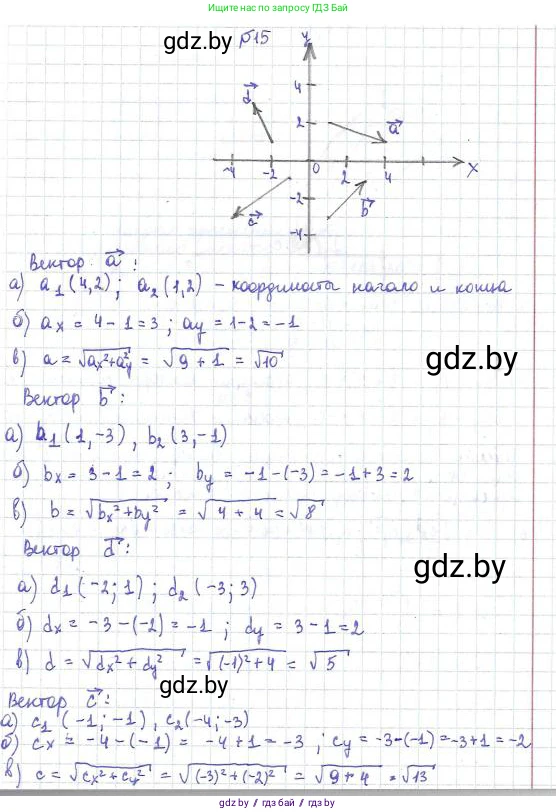 Ищите нас по запросу ГДЗ Бай
gdz.by №15 y
4
d⃗
2
a⃗
-4 -2 0 2 4 x
-2
c⃗ b⃗
-4
Вектор a⃗:
а) a₁(4,2); a₂(1,2) – координаты начало и конца
б) aₓ = 4-1=3; ay = 1-2=-1
в) a = √aₓ²+ay² = √9+1 = √10
gdz.by
Вектор b⃗:
а) b₁(1,-3), b₂(3,-1)
б) bₓ = 3-1=2; by = -1-(-3)=-1+3=2
в) b = √bₓ²+by² = √4+4 = √8
Вектор d⃗:
gdz.by
а) d₁(-2;1); d₂(-3;3)
б) dₓ = -3-(-2)=-1; dy = 3-1=2
в) d = √dₓ²+dy² = √(-1)²+4 = √5
gdz.by
Вектор c⃗:
а) c₁(-1;-1), c₂(-4;-3)
б) cₓ = -4-(-1) = -4+1=-3; cy = -3-(-1)=-3+1=-2
в) c = √cₓ²+cy² = √(-3)²+(-2)² = √9+4 = √13
gdz.by / гдз.бай / gdz.by